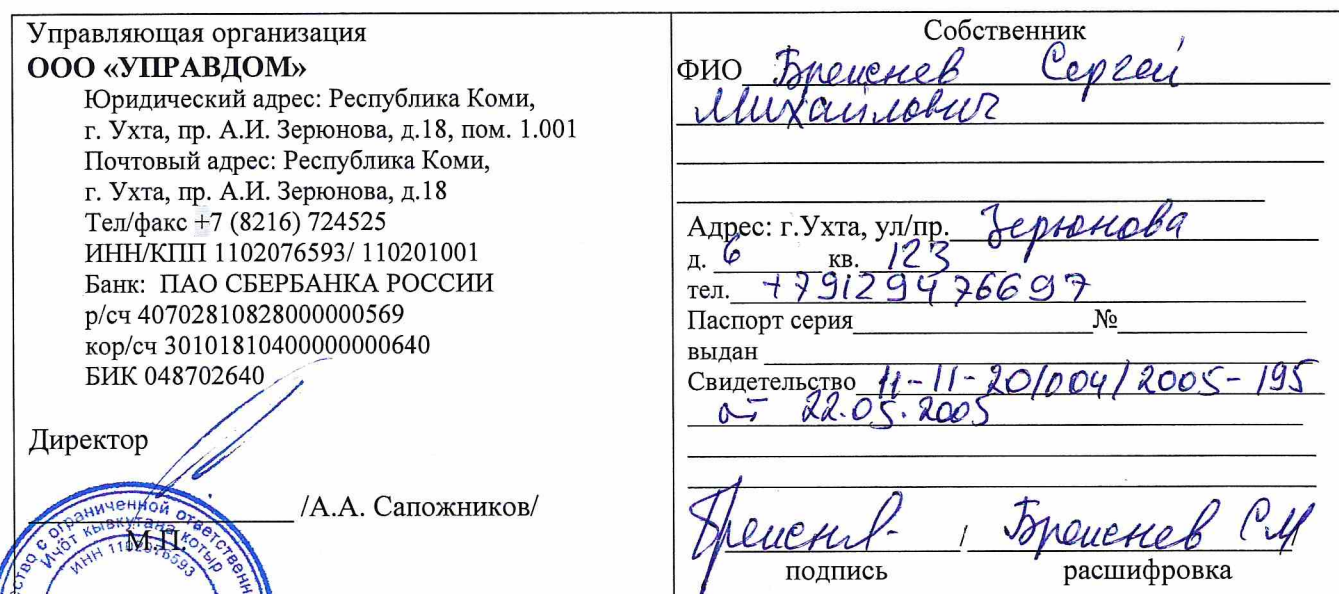 Управляющая организация
ООО «УПРАВДОМ»
Юридический адрес: Республика Коми,
г. Ухта, пр. А.И. Зерюнова, д.18, пом. 1.001
Почтовый адрес: Республика Коми,
г. Ухта, пр. А.И. Зерюнова, д.18
Тел/факс +7 (8216) 724525
ИНН/КПП 1102076593/ 110201001
Банк: ПАО СБЕРБАНКА РОССИИ
р/сч 40702810828000000569
кор/сч 30101810400000000640
БИК 048702640
Директор
/А.А. Сапожников/
М.П.
ограниченной ответственн
Ичӧт кывкутана котыр
ИНН 1102076593
Собственник
ФИО Сергей
Михайлович
Адрес: г.Ухта, ул/пр. Зерюнова
д. 6 кв. 123
тел. +79129476697
Паспорт серия №
выдан
Свидетельство 11-11-20/004/2005-195
от 22.05.2005
/ СМ
подпись расшифровка